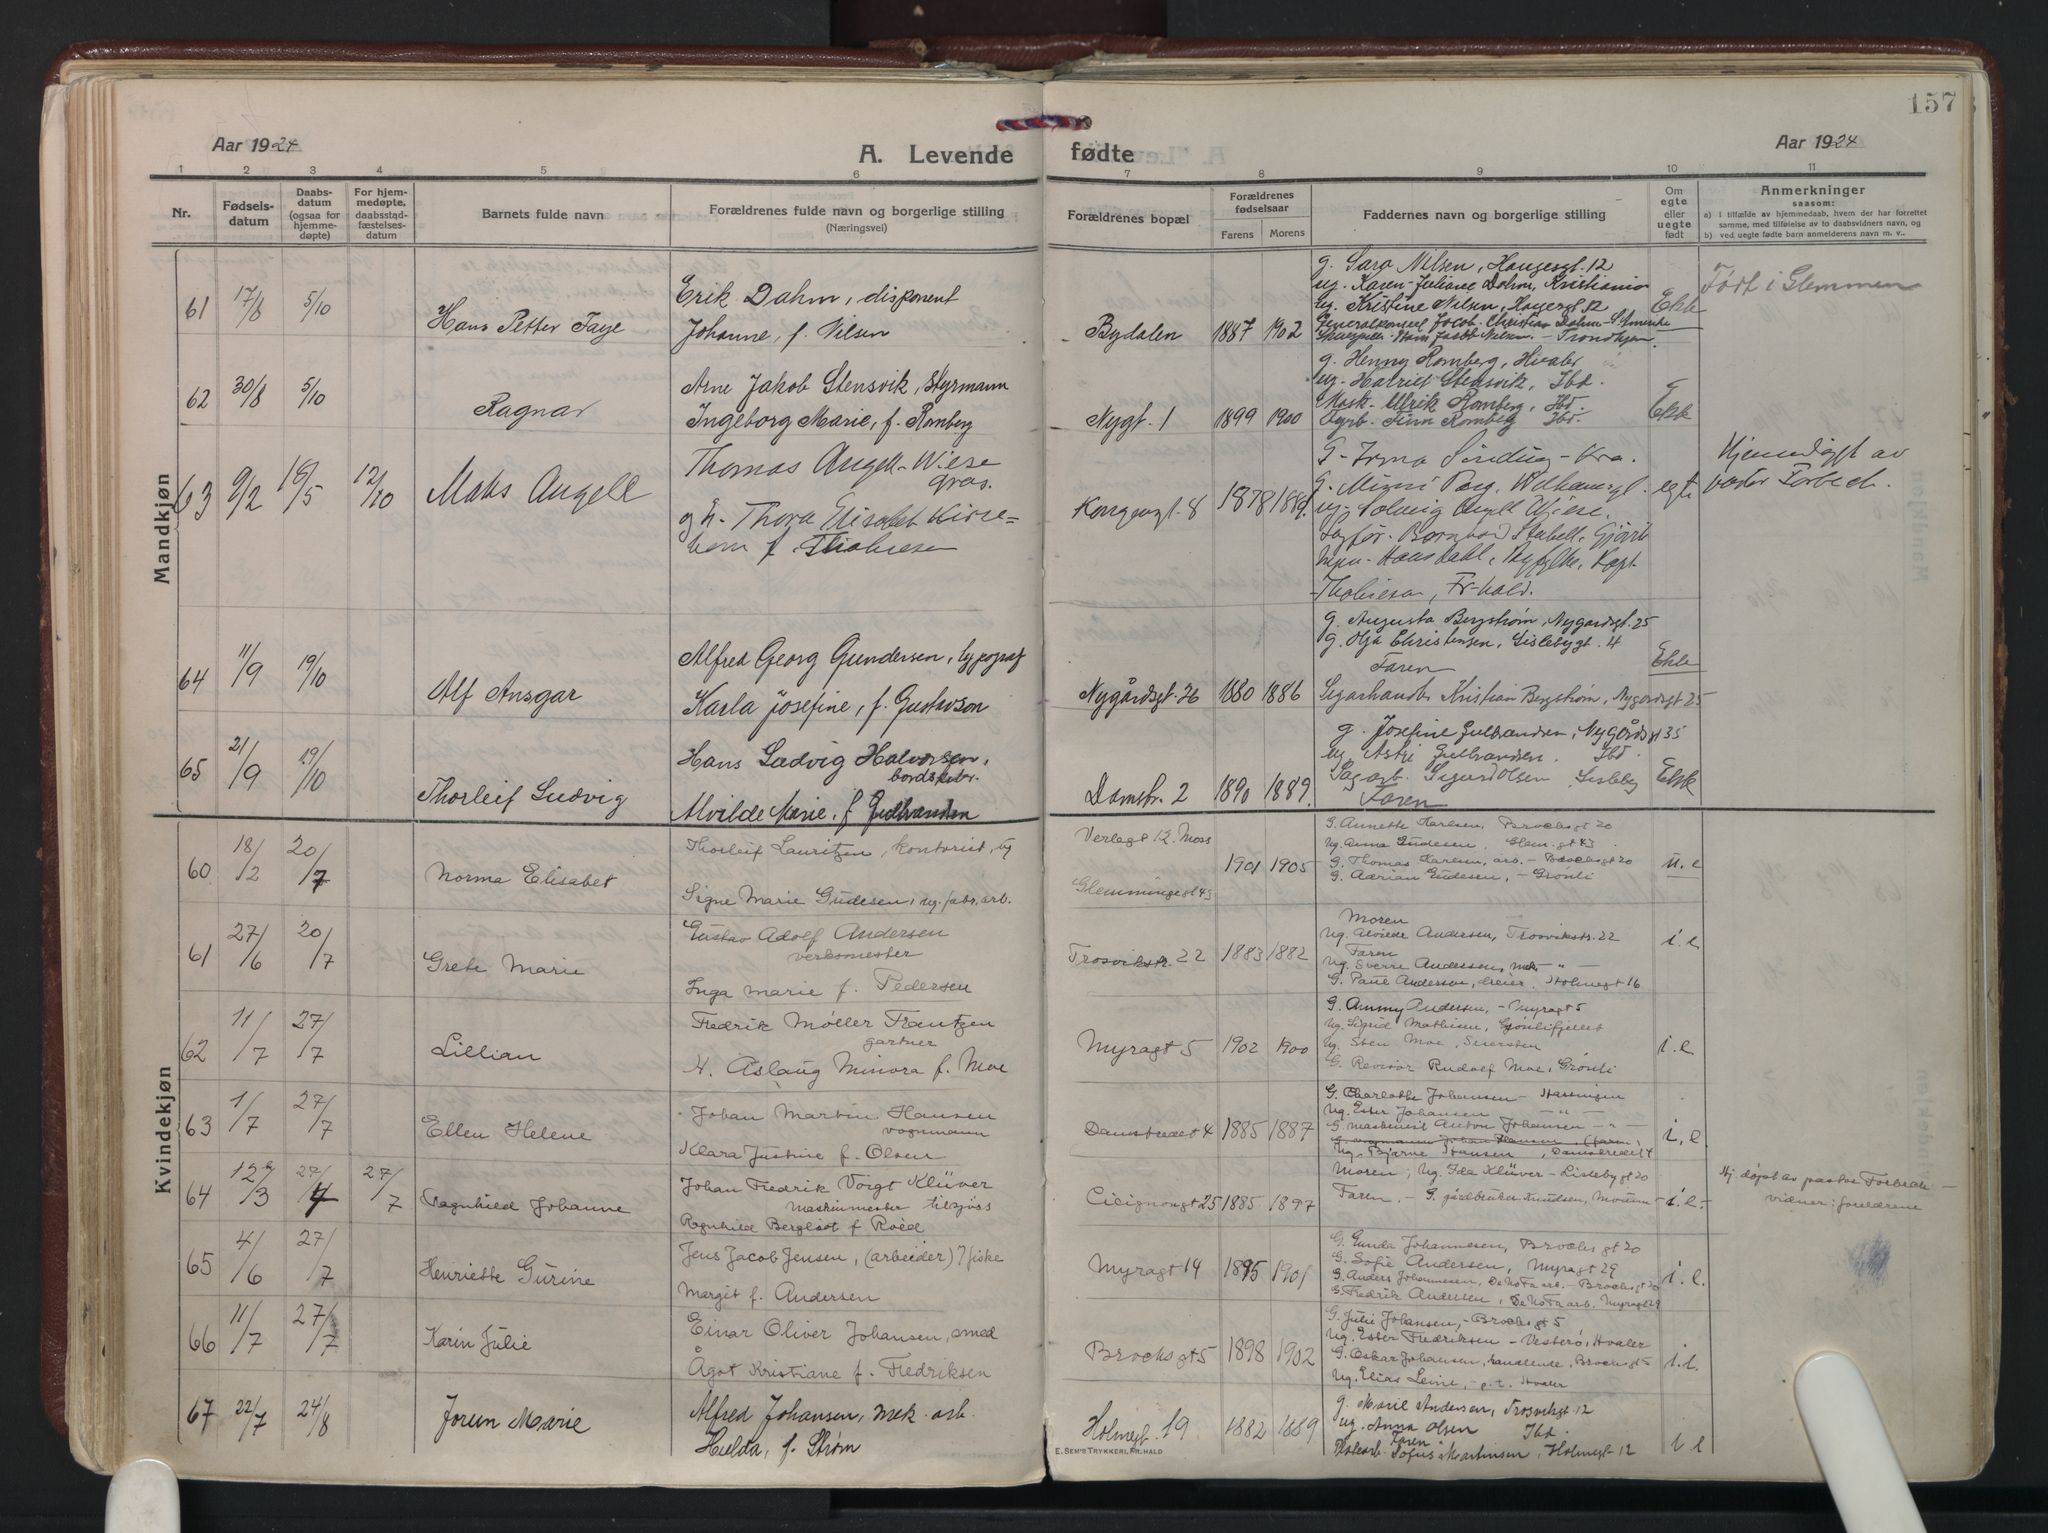 157
Aar 1924
A. Levende fødte
Aar 1924
1 2 3 4 5 6 7 8 9 10 11
Nr.
Fødsels-
datum
Daabs-
datum
(ogsaa for
hjemme-
døpte)
For hjem-
medøpte,
daabsstad-
fæstelses-
datum
Barnets fulde navn
Forældrenes fulde navn og borgerlige stilling
(Næringsvei)
Forældrenes bopæl
Forældrenes
fødselsaar
Farens Morens
Faddernes navn og borgerlige stilling
Om
egte
eller
uegte
født
Anmerkninger
saasom:
a) i tilfælde av hjemmedaab, hvem der har forrettet
samme, med tilføielse av to daabsvidners navn, og
b) ved uegte fødte barn anmelderens navn m. v..
Mandkjøn
61 17/8 5/10 Hans Petter Faye
Erik Dahm, disponent
Johanne, f. Nilsen
Bydalen 1887 1902
g. Sara Nilsen, Haugesgt. 12
ug. Karen-Juliane Dahm, Kristiania
ug. Kristine Nilsen, Haugesgt. 12
Generalkonsul Jacob Christian Dahm - S. Amerika
Hans Jacob Nilsen - Trondhjem
Ekte
Født i Glemmen
62 30/8 5/10 Ragnar
Arne Jakob Stensvik, styrmann
Ingeborg Marie, f. Romberg
Nygt. 1 1899 1900
g. Henny Romberg, Hvaler
ug. Harriet Stensvik, Ibd.
Mask. Ulrik Romberg, Ibd.
Fyrb. Finn Romberg Ibd.
Ekte
63 9/2 18/5 12/10 Mats Angell
Thomas Angell-Wiese
gros.
og h. Thora Elisabet Kirse=
bom f. Thobiesen
Kongensgt. 8 1878 1889.
G. Irma Sinding - Kra.
ug. Solveig Angell Wiese.
Sagfør. Bernhard Stabell, Gjøvik
Hans Dahl, Kapt.
Thobiesen, Fr-hald.
egte
Hjemmedøpt av
pastor Forbech.
64 11/9 19/10 Alf Ansgar
Alfred Georg Gundersen, typograf
Karla Josefine, f. Gustavson
Nygårdsgt. 26 1880 1886
g. Augusta Bergstrøm, Nygårdsgt. 25
g. Olga Christensen, Lislebygt. 4
Faren
Sigarhandler Kristian Bergstrøm, Nygårdsgt 25
Ekte
65 21/9 19/10 Thorleif Ludvig
Hans Ludvig Halvorsen,
bordskbr.
Alvilde Marie, f. Gulbrandsen
Damstr. 2 1890 1889.
g. Josefine Gulbrandsen, Nygårdsgt 35
ug. Astri Gulbrandsen. Ibd
Sagarb. Sigurd Olsen Lisleby
Faren
Ekte
Kvindekjøn
60 18/2 20/7 Norma Elisabet
Thorleif Lauritzen, kontorist, ug
Signe Marie Gudesen, ug. fabr. arb.
Verlegt 12. Moss
Glemmingegt 43
1901 1905
G. Annette Karlsen, Brochsgt 20
Ug. Anna Gudesen, Glem. gt 43
G. Thomas Karlsen, arb. - Brochsgt 20
G. Adrian Gudesen, - Grønli
u. e
61 27/6 20/7 Grete Marie
Gustav Adolf Andersen
verksmester
Inga Marie f. Pedersen
Trosvikstr. 22 1883 1882
Moren
Ug. Alvilde Andersen, Trosvikstr. 22
Faren
Ug. Sverre Andersen, mek. - " -
G. Paul Anderson, dreier, Holmegt 16
i. e
62 11/7 27/7 Lillian
Fredrik Møller Frantzen
gartner
H. Aslaug Minora f. Moe
Myragt 5 1902 1900
G. Ammy Andersen, - Myragt 5
Ug. Sigrid Mathisen, Grønlifjellet
Ug. Sten Moe, Seiersten
G. Revisor Rudolf Moe, Grønli
i. e.
63 1/7 27/7 Ellen Helene
Johan Martin Hansen
vognmann
Klara Justine f. Olsen
Damstredet 4 1885 1887
G. Charlotte Johansen - Hassingen
Ug. Ester Johansen - " -
G maskinist Anton Johansen - " -
G. vognmann Johan Hansen, (faren)
Ug. Bjarne Hansen, Damstredet 4
i. e.
64 12/3 27/7 27/7 Ragnhild Johanne
Johan Fredrik Voigt Klüver
maskinmester tilsjøss
Ragnhild Bergliot f Roëd
Cicignongt 25 1885 1897
Moren; Ug. Ida Klüver - Lislebygt 20
Faren. - G. gårdbruker Knudsen, Mosum
i. e.
Hj. døpt av pastor Forbech -
vidner: foreldrene
65 4/6 27/7 Henriette Gurine
Jens Jacob Jensen, (arbeider) fiske
Margit f. Andersen
Myragt 14 1895 1901
G. Gunda Johannesen, Brochsgt 20
G. Sofie Andersen, Myragt 29
G. Anders Johannesen, De No Fa arb. - Brochsgt 20
G. Fredrik Andersen, De No Fa arb. Myragt 29
i. e.
66 11/7 27/7 Karin Julie
Einar Oliver Johansen, smed
Ågot Kristiane f. Fredriksen
Brochsgt 5 1898 1902
G. Julie Johansen, - Brochsgt 5
Ug. Ester Fredriksen - Vesterø, Hvaler
G. Oskar Johansen, handlende, Brochsgt 5
Ug. Elias Leine, - p. t. Hvaler
i. e.
67 22/7 24/8 Jorun Marie
Alfred Johansen, mek. arb.
Hulda, f. Strøm
Holmegt. 19 1882 1889
g. Marie Andersen, Trosvikgt. 12
ug. Anna Olsen Ibd.
Faren
Sofus Martinsen, Holmegt. 12
i e
E. SEM'S TRYKKERI, FR.HALD